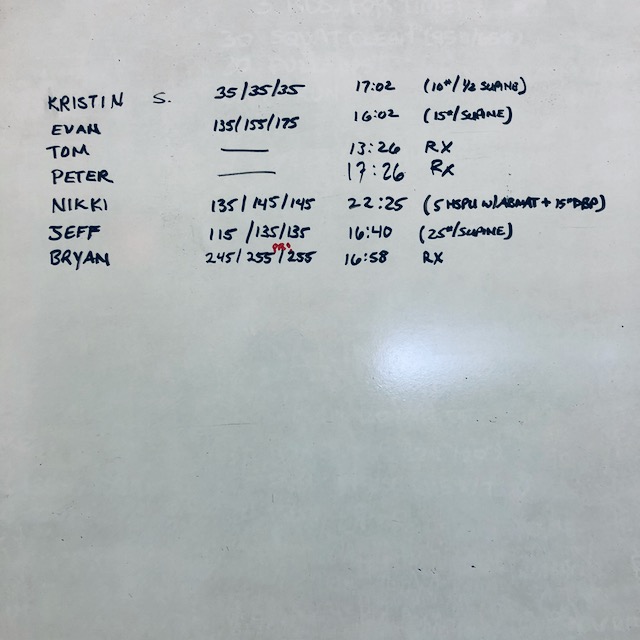 KRISTIN S. 35/35/35 17:02 (10#/½ SUPINE)
EVAN 135/155/175 16:02 (15#/SUPINE)
TOM — 13:26 RX
PETER — 17:26 RX
NIKKI 135/145/145 22:25 (5 HSPU W/ABMAT + 15#DBP)
JEFF 115/135/135 16:40 (25#/SUPINE)
BRYAN 245/255/255 16:58 RX